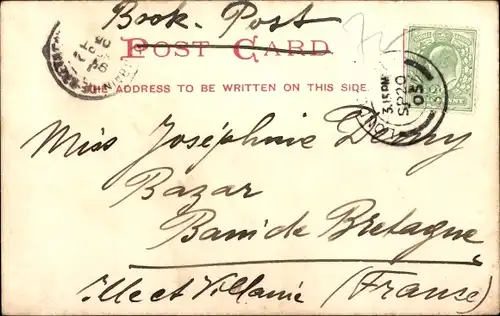 Book - Post
POST CARD
THE ADDRESS TO BE WRITTEN ON THIS SIDE
3.15PM
SP 20
05
Miss Joséphine
Bazar
Bain de Bretagne
Ille et Villanie (Franse)